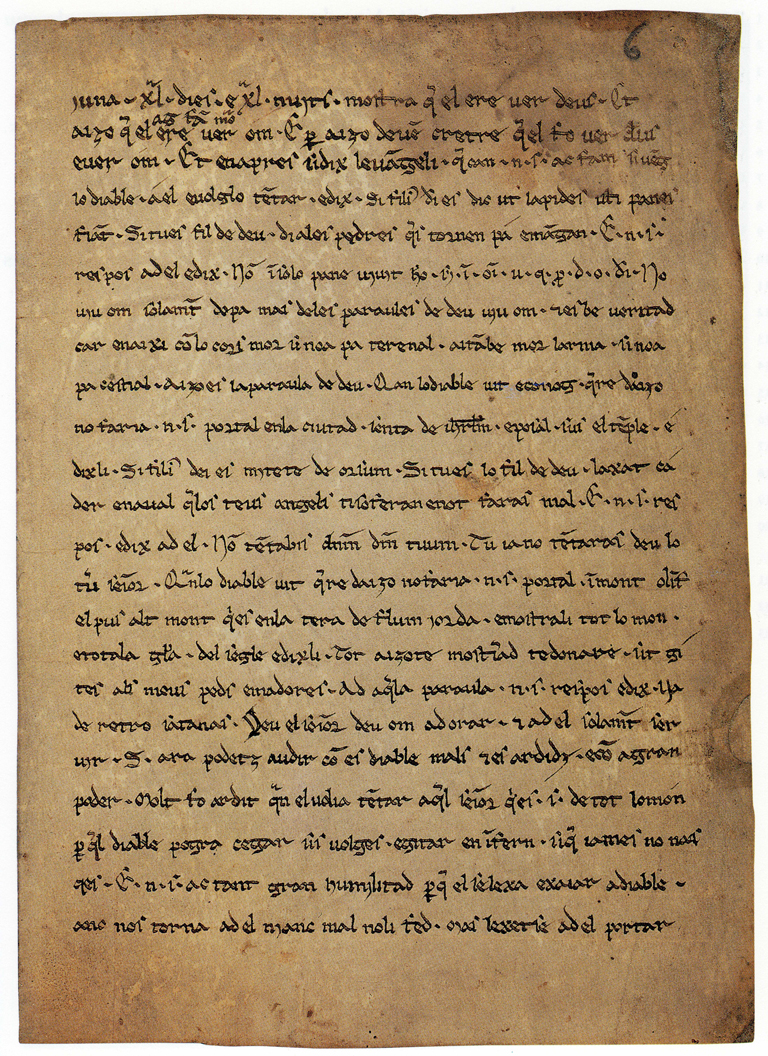 6
juna · xl · dies · e xl · nuyts · mostra q̄ el ere ver deus · Et
ac fam mō
aizo q̄ el ere ver om · E ꝑ aizo deuē creire q̄el fo ver dius
e ver om · Et enapres si dix leuāgeli · q̄can · n · s · ac fam si uēg
lo diable · a el e uolglo tētar · edix · Si fili di es dic ut lapides isti panes
fiāt · Si tu es fil de deu · di ales pedres q̄s tornen pā emāgan · E · n · s ·
respos ad el edix · Nō ī solo pane uiuit ho · s · ī · oī · u · q · p · d · o · di · No
uiu om solamt̄ de pa mas deles paraules de deu uiu om · ⁊ es be veritad
car enaixi cō lo cors mor si no a pa terenal · aitābe mor larma · si noa
pa celestial · Aizo es la paraula de deu · Qan lo diable vit e conog · q̄re daizo
no faria · n · s · portal en la ciutad · sēnta de ihrlm · e posal · sus el tēple · e
dix li · Si fili dei es mitete de orsum · Si tu es lo fil de deu · laxat ca
der enaual q̄ los teus angels ti soferan e not faras mal · E · n · s · res
pos · edix ad el · Nō tētabis dn̄m dm̄ tuum · Tu ia no tētaras deu lo
tū seior · Qn̄ lo diable vit q̄ re daizo no faria · n · s · portal · ī mont olif
el pus alt mont q̄ es en la tera de flum jorda · e mostra li tot lo mon ·
e tota la gl̄a · del segle e dix li · Tot aizo te mostrad te donare · sit gi
tes als meus peds e madores · Ad aq̄la paraula · n · s · respos edix · Ua
de retro satanas · Deu el seior deu om adorar · ⁊ ad el solamt̄ ser
uir · S · ara podetz audir cō es diable mals ⁊ es ardidz · ecō a gran
poder · Molt fo ardit qn̄ el volia tētar aq̄l seior q̄ es · s · de tot lo mon
ꝑ q̄l diable pogra cegar sis volges · e gitar en īfern · si q̄ ia mes no nas
qes · E · n · s · ac tant gran humilitad ꝑ q̄ el se lexa exaiar a diable ·
anc nos torna ad el n janc mal noli fed · Mas lexet se ad el portar